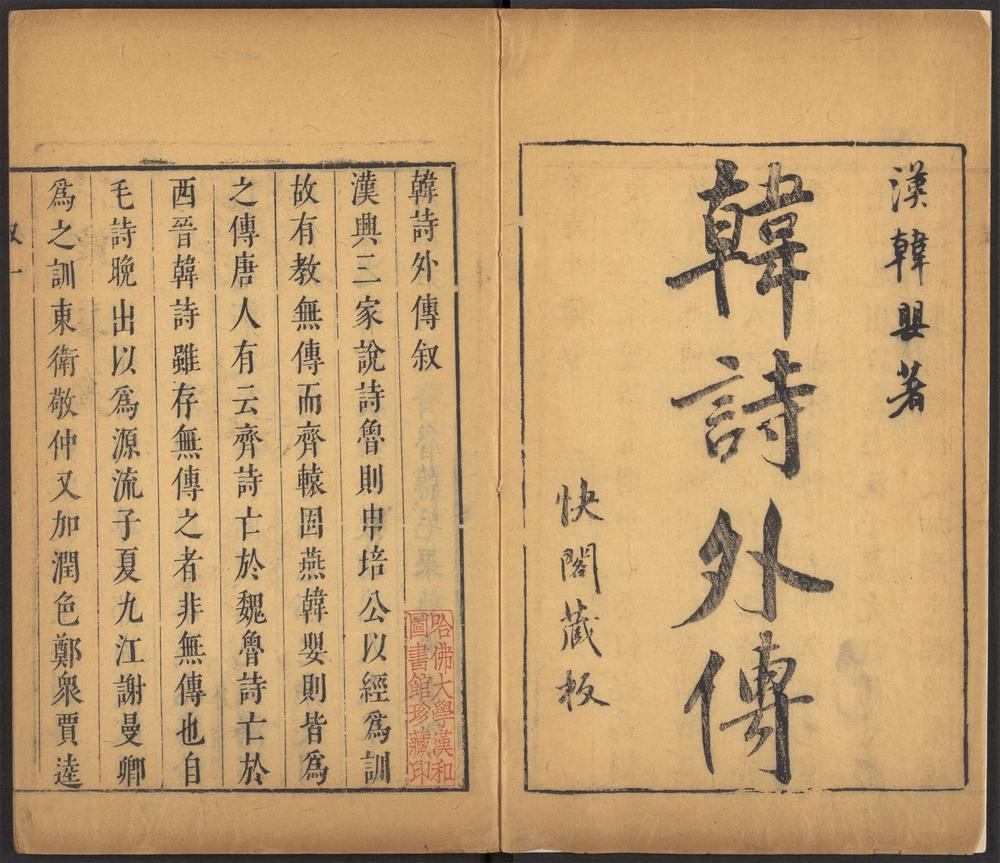 漢韓嬰著
韓詩外傳
快閣藏板
韓詩外傳叙
漢興三家說詩魯則申培公以經爲訓
故有教無傳而齊轅固燕韓嬰則皆爲
之傳唐人有云齊詩亡於魏魯詩亡於
西晉韓詩雖存無傳之者非無傳也自
毛詩晚出以爲源流子夏九江謝曼卿
爲之訓東衛敬仲又加潤色鄭衆賈逵
叙一
哈佛大學漢和
圖書館珍藏印